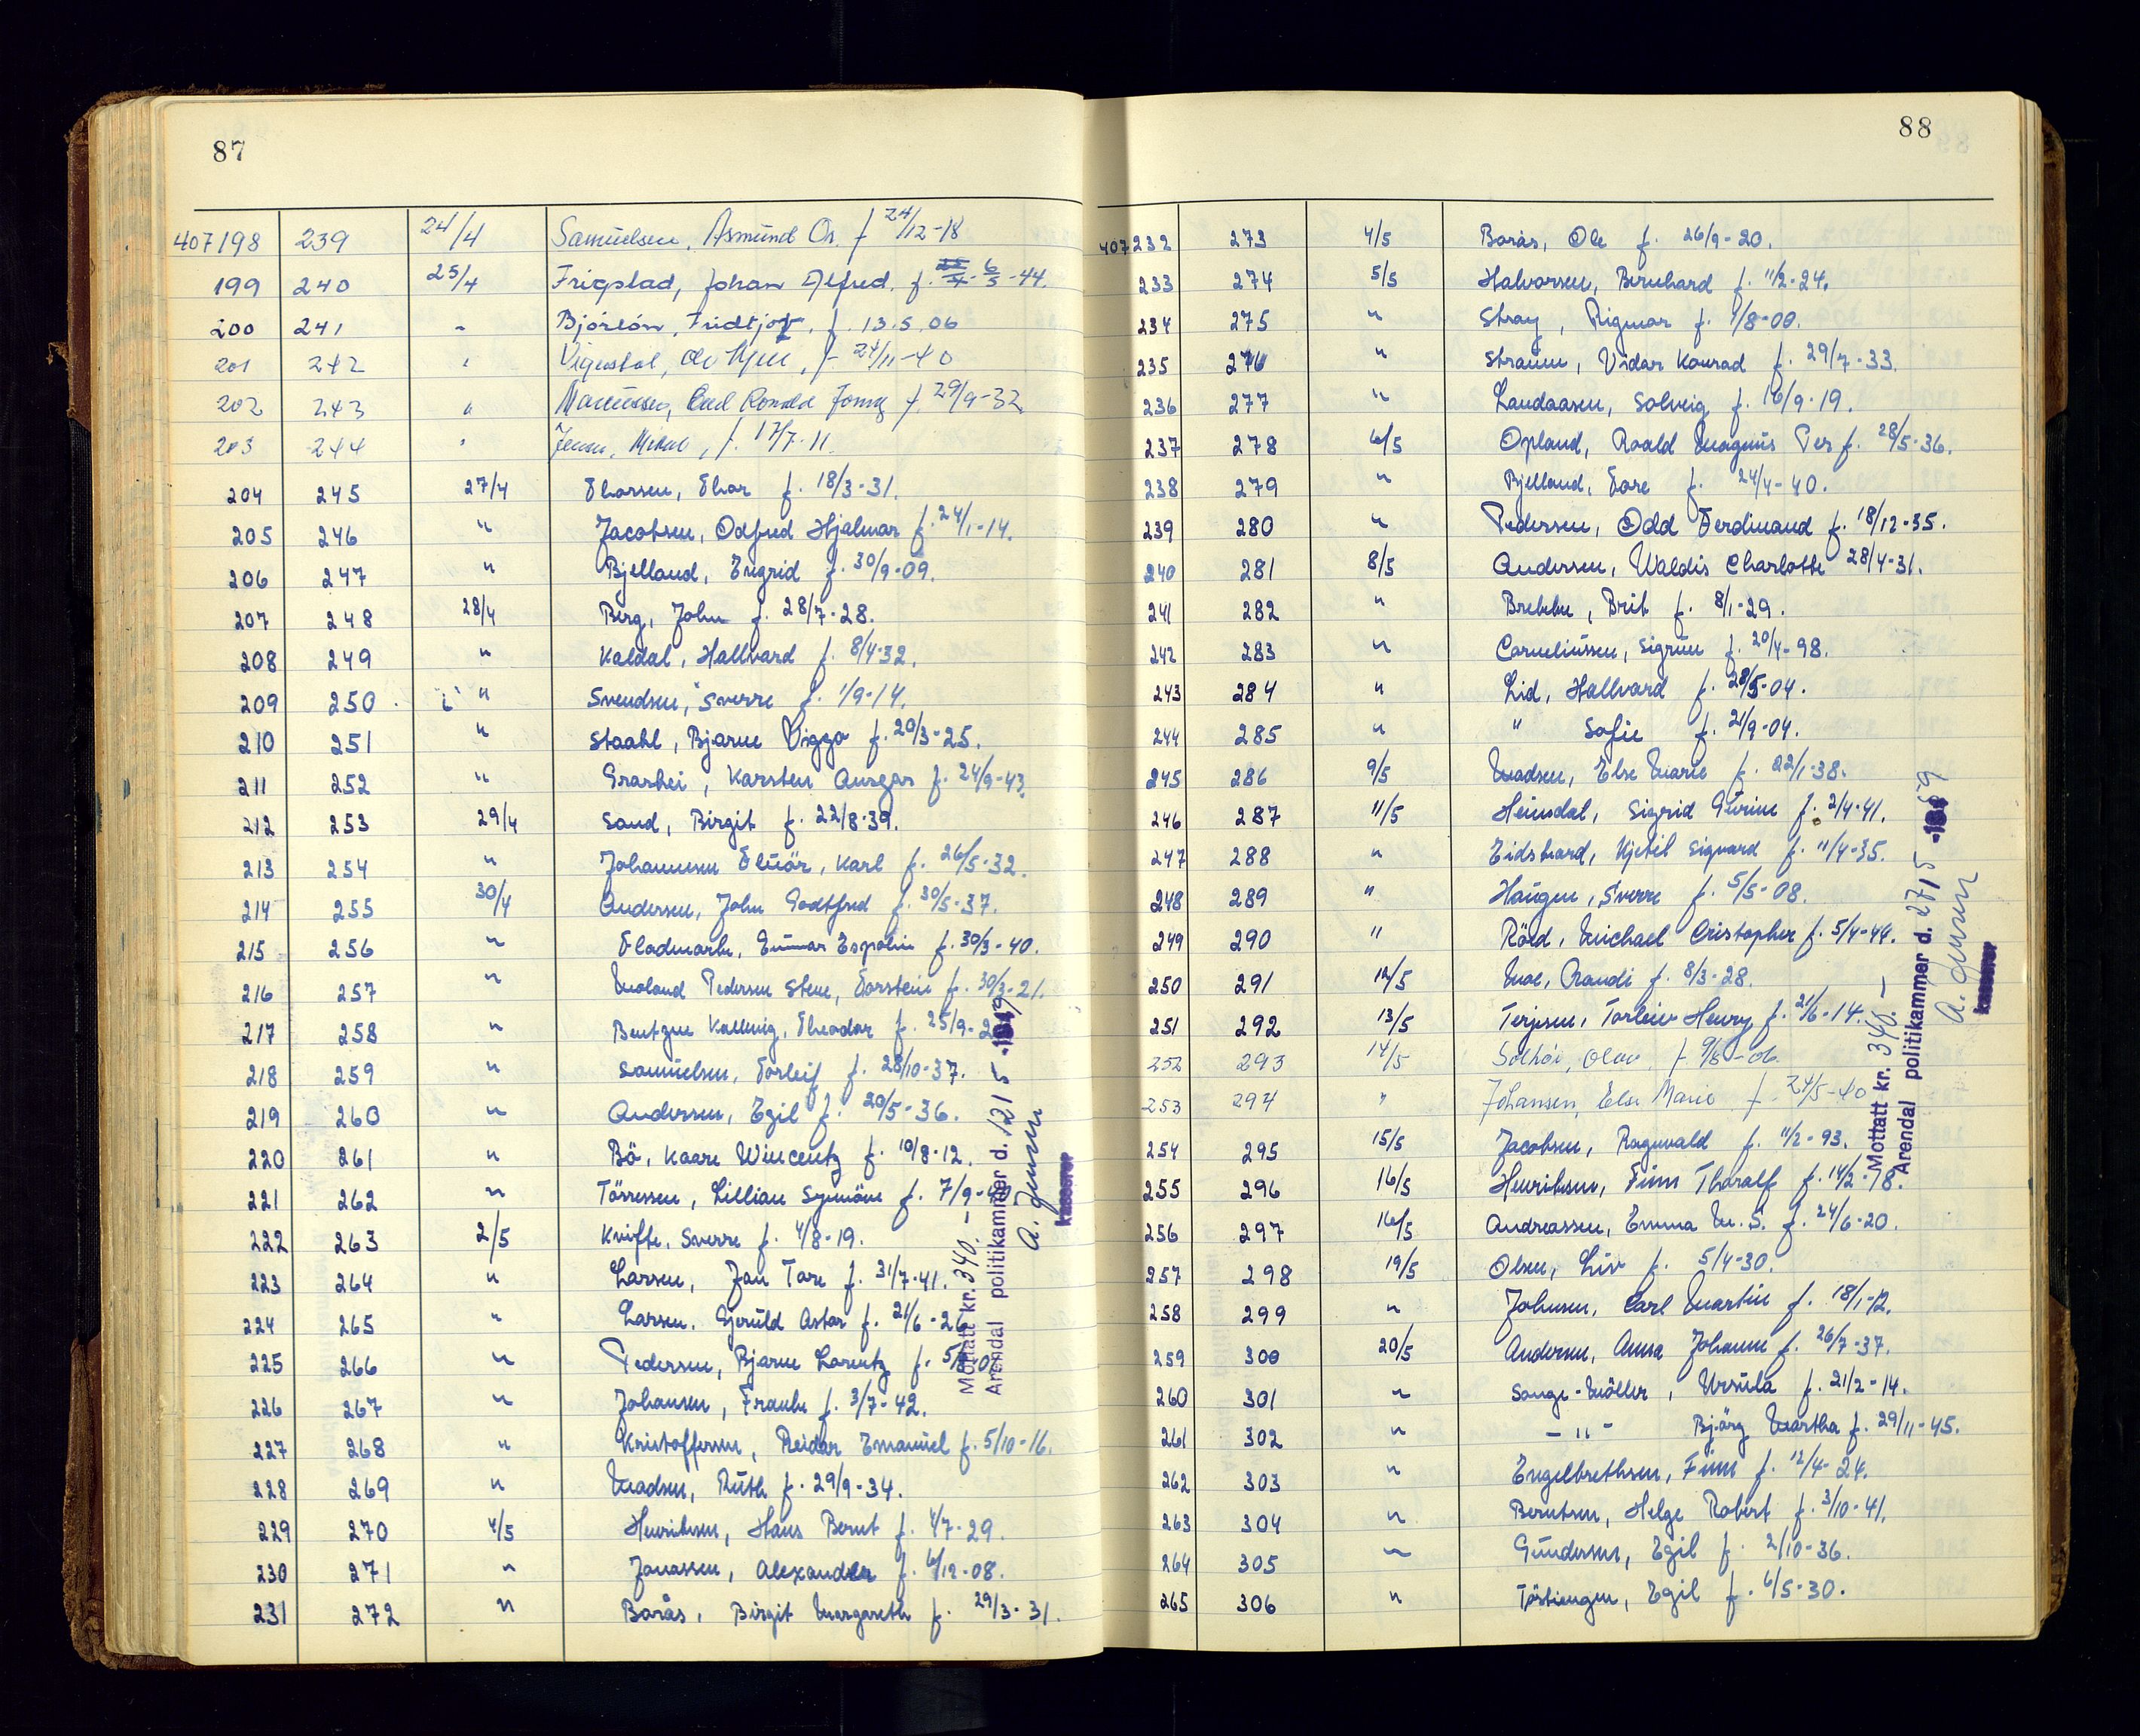 87
407198 239 24/4 Samuelsen, Asmund Os. f 24/12-18
199 240 25/4 Frigstad, Johan Alfred, f. 6/5-44.
200 241 " Fridtjof, f. 13.5.06
201 242 " f 24/11-40
202 243 " Carl Ronald f 29/9-32
203 244 " Jensen, f. 17/7-11.
204 245 27/4 f. 18/3-31.
205 246 " Jacobsen, Odfred Hjalmar f. 24/1-14.
206 247 " Bjelland, Engrid f. 30/9-09.
207 248 28/4 Berg, John f. 28/7-28.
208 249 " Kaldal, Hallvard f. 8/4-32.
209 250 " Svendsen, Sverre f. 1/9-14.
210 251 " Staahl, Bjarne Viggo f. 20/3-25.
211 252 " Karsten Ansgar f. 24/9-43.
212 253 29/4 Sand, Birgit f. 22/8-39.
213 254 " Johannesen Karl f. 26/5-32.
214 255 30/4 Andersen, John Godtfred f. 30/5-37.
215 256 " Fladmark, Espolin f. 30/3-40.
216 257 " Moland Pedersen Torstein f. 30/3-21.
217 258 " Bentzen Kallevig, Theodor f. 25/9-
218 259 " Samuelsen, Torleif f. 28/10-37.
219 260 " Andersen, Egil f. 20/5-36.
220 261 " Bö, Kaare Wincentz f. 10/8-12.
221 262 " Törressen, Lillian Synnöve f. 7/9-
222 263 2/5 Knifte, Sverre f. 4/8-19.
223 264 " Larsen, Jan Tore f. 31/7-41.
224 265 " Larsen, Gjeruld f. 21/6-26
225 266 " Pedersen, Bjarne Lorentz f. 5/
226 267 " Johansen, Frank f. 3/7-42.
227 268 " Kristoffersen, Reidar Emanuel f. 5/10-16.
228 269 " Madsen, Ruth f. 29/9-34.
229 270 4/5 Henriksen, Hans Bernt f. 4/7-29.
230 271 " Jonassen, Alexander f. 6/12-08.
231 272 " Borås, Birgit Margareth f. 29/3-31.
Mottatt kr. 340.-
Arendal politikammer d. 12/5
A. Jensen
kasserer
88
407232 273 4/5 Borås, Ole f. 26/9-20.
233 274 5/5 Halvorsen, Bernhard f. 11/2-24.
234 275 " Stray, Rigmor f. 1/8-00.
235 276 " Straum, Vidar Konrad f. 29/7-33.
236 277 " Landaasen, Solveig f. 16/9-19.
237 278 6/5 Opland, Roald Magnus Per f. 28/5-36.
238 279 " Bjelland, Tore f. 24/4-40.
239 280 " Pedersen, Odd Ferdinand f. 18/12-35.
240 281 8/5 Andersen, Waldis Charlotte 28/4-31.
241 282 " Brekke, Brit f. 8/1-29.
242 283 " Corneliussen, Sigrun f. 20/4-98.
243 284 " Lid, Hallvard f. 28/5-04.
244 285 " " Sofie f. 21/9-04.
245 286 9/5 Madsen, Else Marie f. 22/1-38.
246 287 11/5 Heimdal, Sigrid Gurine f. 2/4-41.
247 288 " Kjetil Sigvard f. 11/4-35.
248 289 " Haugen, Sverre f. 5/5-08.
249 290 " Röed, Michael Cristopher f. 5/4-44.
250 291 12/5 Moe, Randi f. 8/3-28.
251 292 13/5 Terjesen, Torleiv Henry f. 21/6-14.
252 293 14/5 Solhöi, Olav f 9/8-06.
253 294 " Johansen, Else Marie f. 24/5-40
254 295 15/5 Jacobsen, Ragnvald f. 11/2-93.
255 296 16/5 Henriksen, Finn Tharalf f. 14/2-18.
256 297 16/5 Andreassen, Emma M. S. f. 24/6-20.
257 298 19/5 Olsen, Liv f. 5/4-30.
258 299 " Johnsen, Carl Martin f. 18/1-12.
259 300 20/5 Andersen, Anna Johanne f. 26/7-37.
260 301 " Sange-Möller, Ursula f. 21/2-14.
261 302 " - " - Bjärg Martha f. 29/11-45.
262 303 " Engelbrethsen, Finn f. 12/4-24.
263 304 " Berntsen, Helge Robert f. 3/10-41.
264 305 " Gundersen, Egil f. 2/10-36.
265 306 " Egil f. 6/5-30.
Mottatt kr. 340.-
Arendal politikammer d. 27/5 -1959
A. Jensen
kasserer